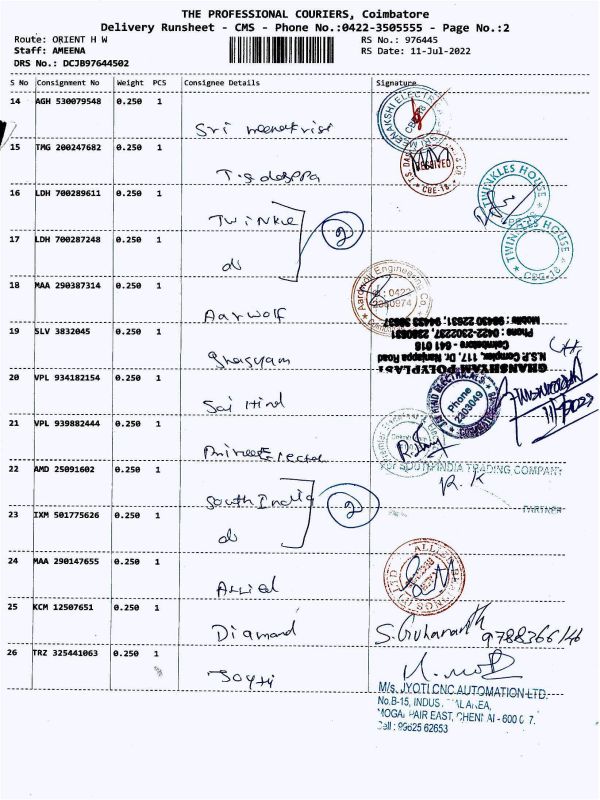 THE PROFESSIONAL COURIERS, Coimbatore
Delivery Runsheet - CMS - Phone No.:0422-3505555 - Page No.:2
Route: ORIENT H W RS No.: 976445
Staff: AMEENA RS Date: 11-Jul-2022
DRS No.: DCJB97644502
S No Consignment No Weight PCS Consignee Details Signature
14 AGH 530079548 0.250 1
Sri
15 TMG 200247682 0.250 1
RECEIVED
CBE-18
16 LDH 700289611 0.250 1
TWINKLES HOUSE
Twinkle
2
17 LDH 700287248 0.250 1
TWINKLES HOUSE
CBG-18
do
18 MAA 290387314 0.250 1
Aardwolf Engineering Co
0422
Aarwolf
Mobile : 98430 22631, 94433 36837
Phone : 0422-2302297, 2380831
Coimbatore - 641 018
N.S.P. Complex, 117, Dr. Nanjappa Road
GHANSHYAM POLYPLAST
19 SLV 3832045 0.250 1
Ghasyam
20 VPL 934182154 0.250 1
JAI HIND ELECTRICALS
Phone
2303049
Sai Hind
21 VPL 939882444 0.250 1
22 AMD 25091602 0.250 1
For SOUTH INDIA TRADING COMPANY
R.K
PARTNER
South India
2
23 IXM 501775626 0.250 1
do
24 MAA 290147655 0.250 1
Allied
25 KCM 12507651 0.250 1
Diamond
S. Guhananth
26 TRZ 325441063 0.250 1
Joyti
M/s. JYOTI CNC AUTOMATION LTD.
No.B-15, INDUS
MOGAPPAIR EAST, CHENNAI - 600 037.
Cell : 99625 62653